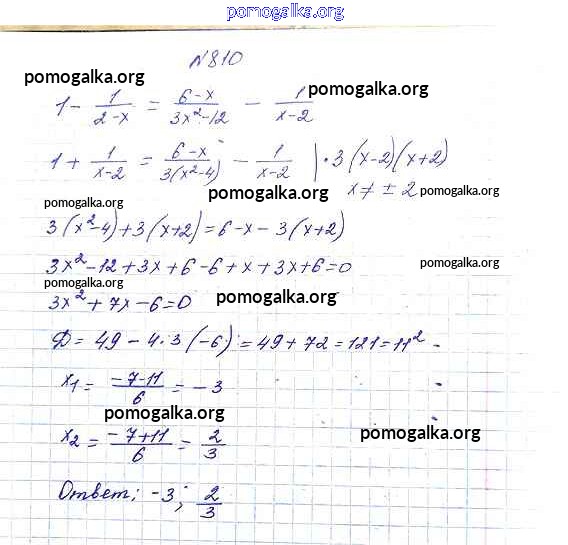 pomogalka.org
N810
pomogalka.org
pomogalka.org
1 - 1/(2-x) = (6-x)/(3x²-12) - 1/(x-2)
1 + 1/(x-2) = (6-x)/(3(x²-4)) - 1/(x-2) | · 3(x-2)(x+2)
pomogalka.org x ≠ ± 2 pomogalka.org
pomogalka.org
3(x²-4)+3(x+2)=6-x-3(x+2)
3x²-12+3x+6-6+x+3x+6=0 pomogalka.org
pomogalka.org
3x²+7x-6=0 pomogalka.org
D = 49 - 4·3(-6) = 49+72=121=11²
x₁ = (-7-11)/6 = -3
pomogalka.org
x₂ = (-7+11)/6 = 2/3 pomogalka.org
pomogalka.org
Ответ: -3; 2/3
pomogalka.org